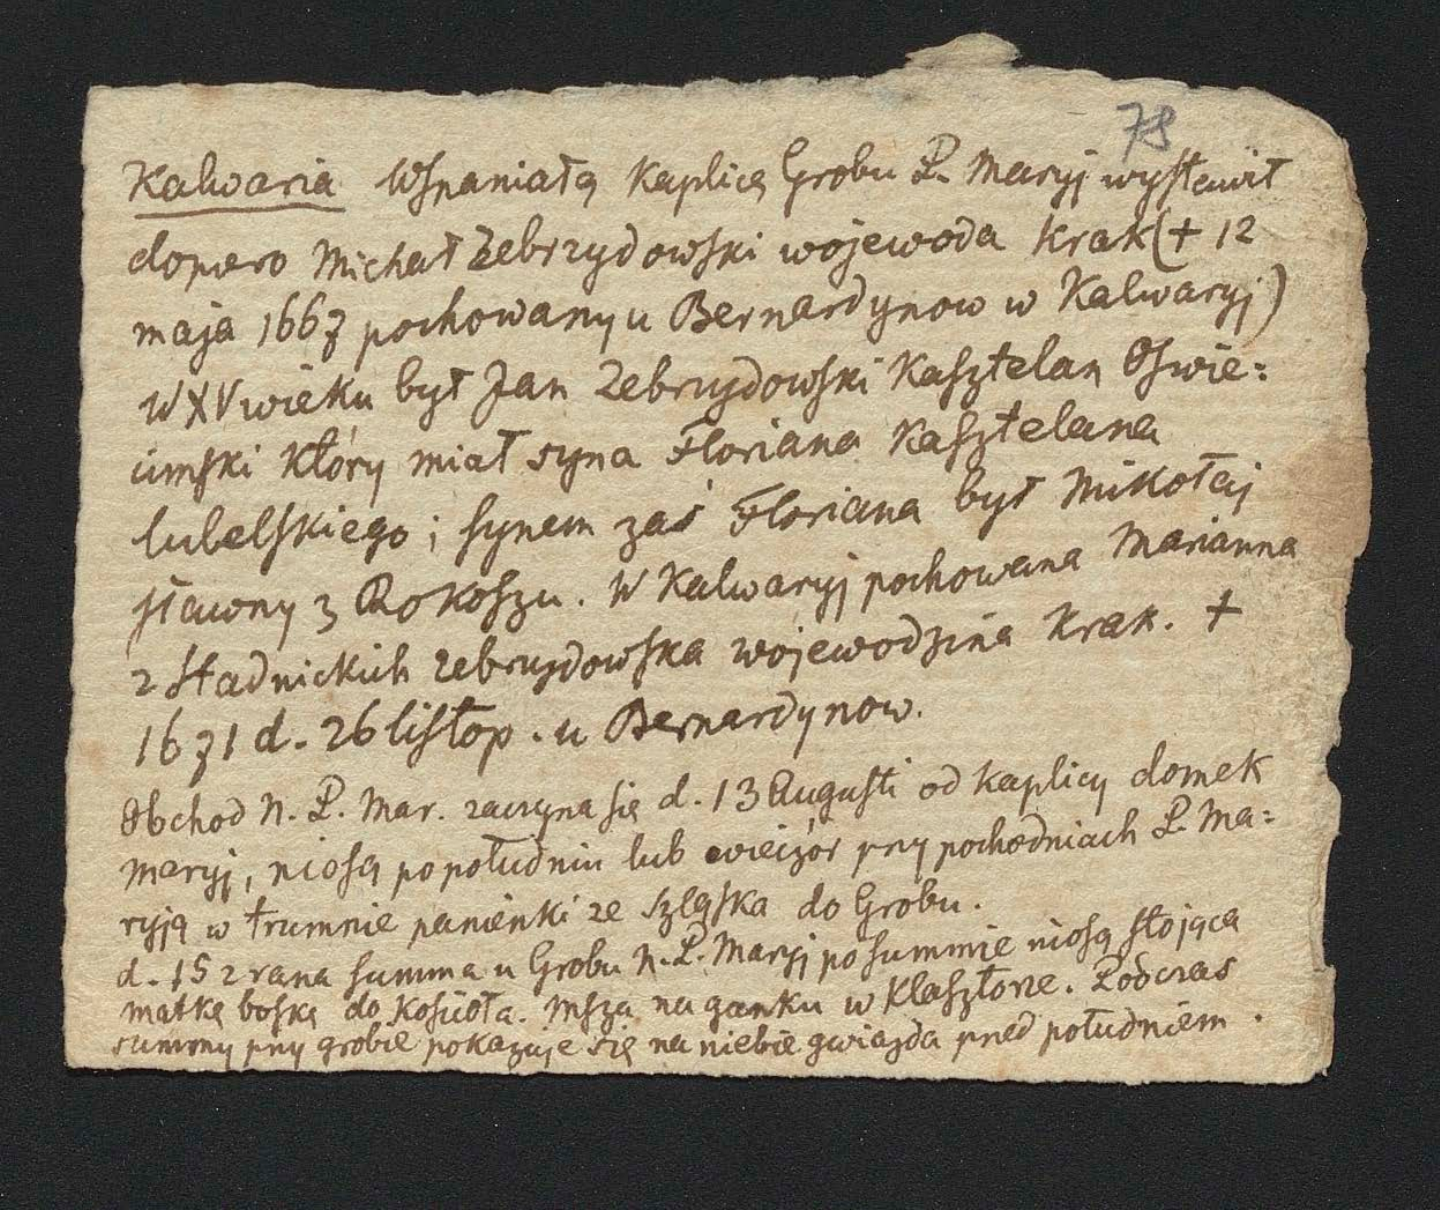 78
Kalwaria Wspaniałą Kaplicę Grobu P. Maryj wystawił
dopiero Michał Zebrzydowski wojewoda Krak († 12
maja 1667 pochowany u Bernardynow w Kalwaryj)
W XV wieku był Jan Zebrzydowski Kasztelan Oswie=
cimski który miał syna Floriana Kasztelana
lubelskiego; synem zaś Floriana był Mikołaj
sławny z Rokoszu. W Kalwaryj pochowana Marianna
z Stadnickich Zebrzydowska wojewodzina Krak. †
1671 d. 26 listop. u Bernardynow.
Obchod N. P. Mar. zaczyna się d. 13 Augusti od Kaplicy domek
Maryj, niosą po południu lub wieczór przy pochodniach P. Ma=
ryją w trumnie panienki ze Szląska do Grobu.
d. 15 z rana summa u Grobu N. P. Maryj po summie niosą stojąca
matkę boską do Kościoła. Msza na ganku w Klasztorze. Podczas
summy przy grobie pokazuje się na niebie gwiazda przed południem.